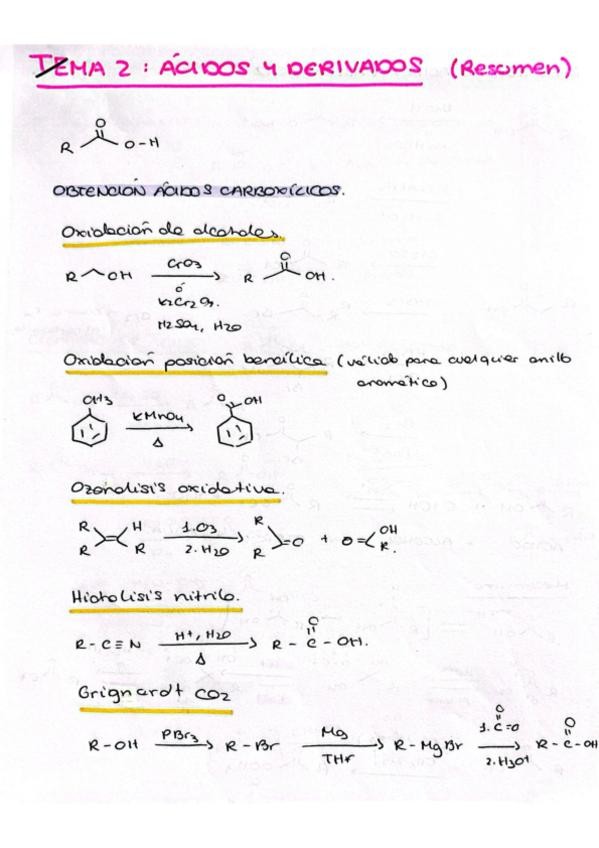 TEMA 2: ÁCIDOS Y DERIVADOS (Resumen)
O
R O-H
OBTENCIÓN ÁCIDOS CARBOXÍLICOS.
Oxidación de alcoholes.
R OH CrO3 R O OH.
ó
K2Cr2O7.
H2SO4, H2O
Oxidación posición bencílica (válido para cualquier anillo
aromático)
CH3 KMnO4 O OH
Δ
Ozonolisis oxidativa.
R H 1.O3 R OH
R R 2.H2O R =O + O= R.
Hidrolisis nitrilo.
R-C≡N H+, H2O R-C-OH.
Δ O
Grignardt CO2
R-OH PBr3 R-Br Mg R-MgBr 1. O=C=O R-C-OH
THF 2.H3O+ O